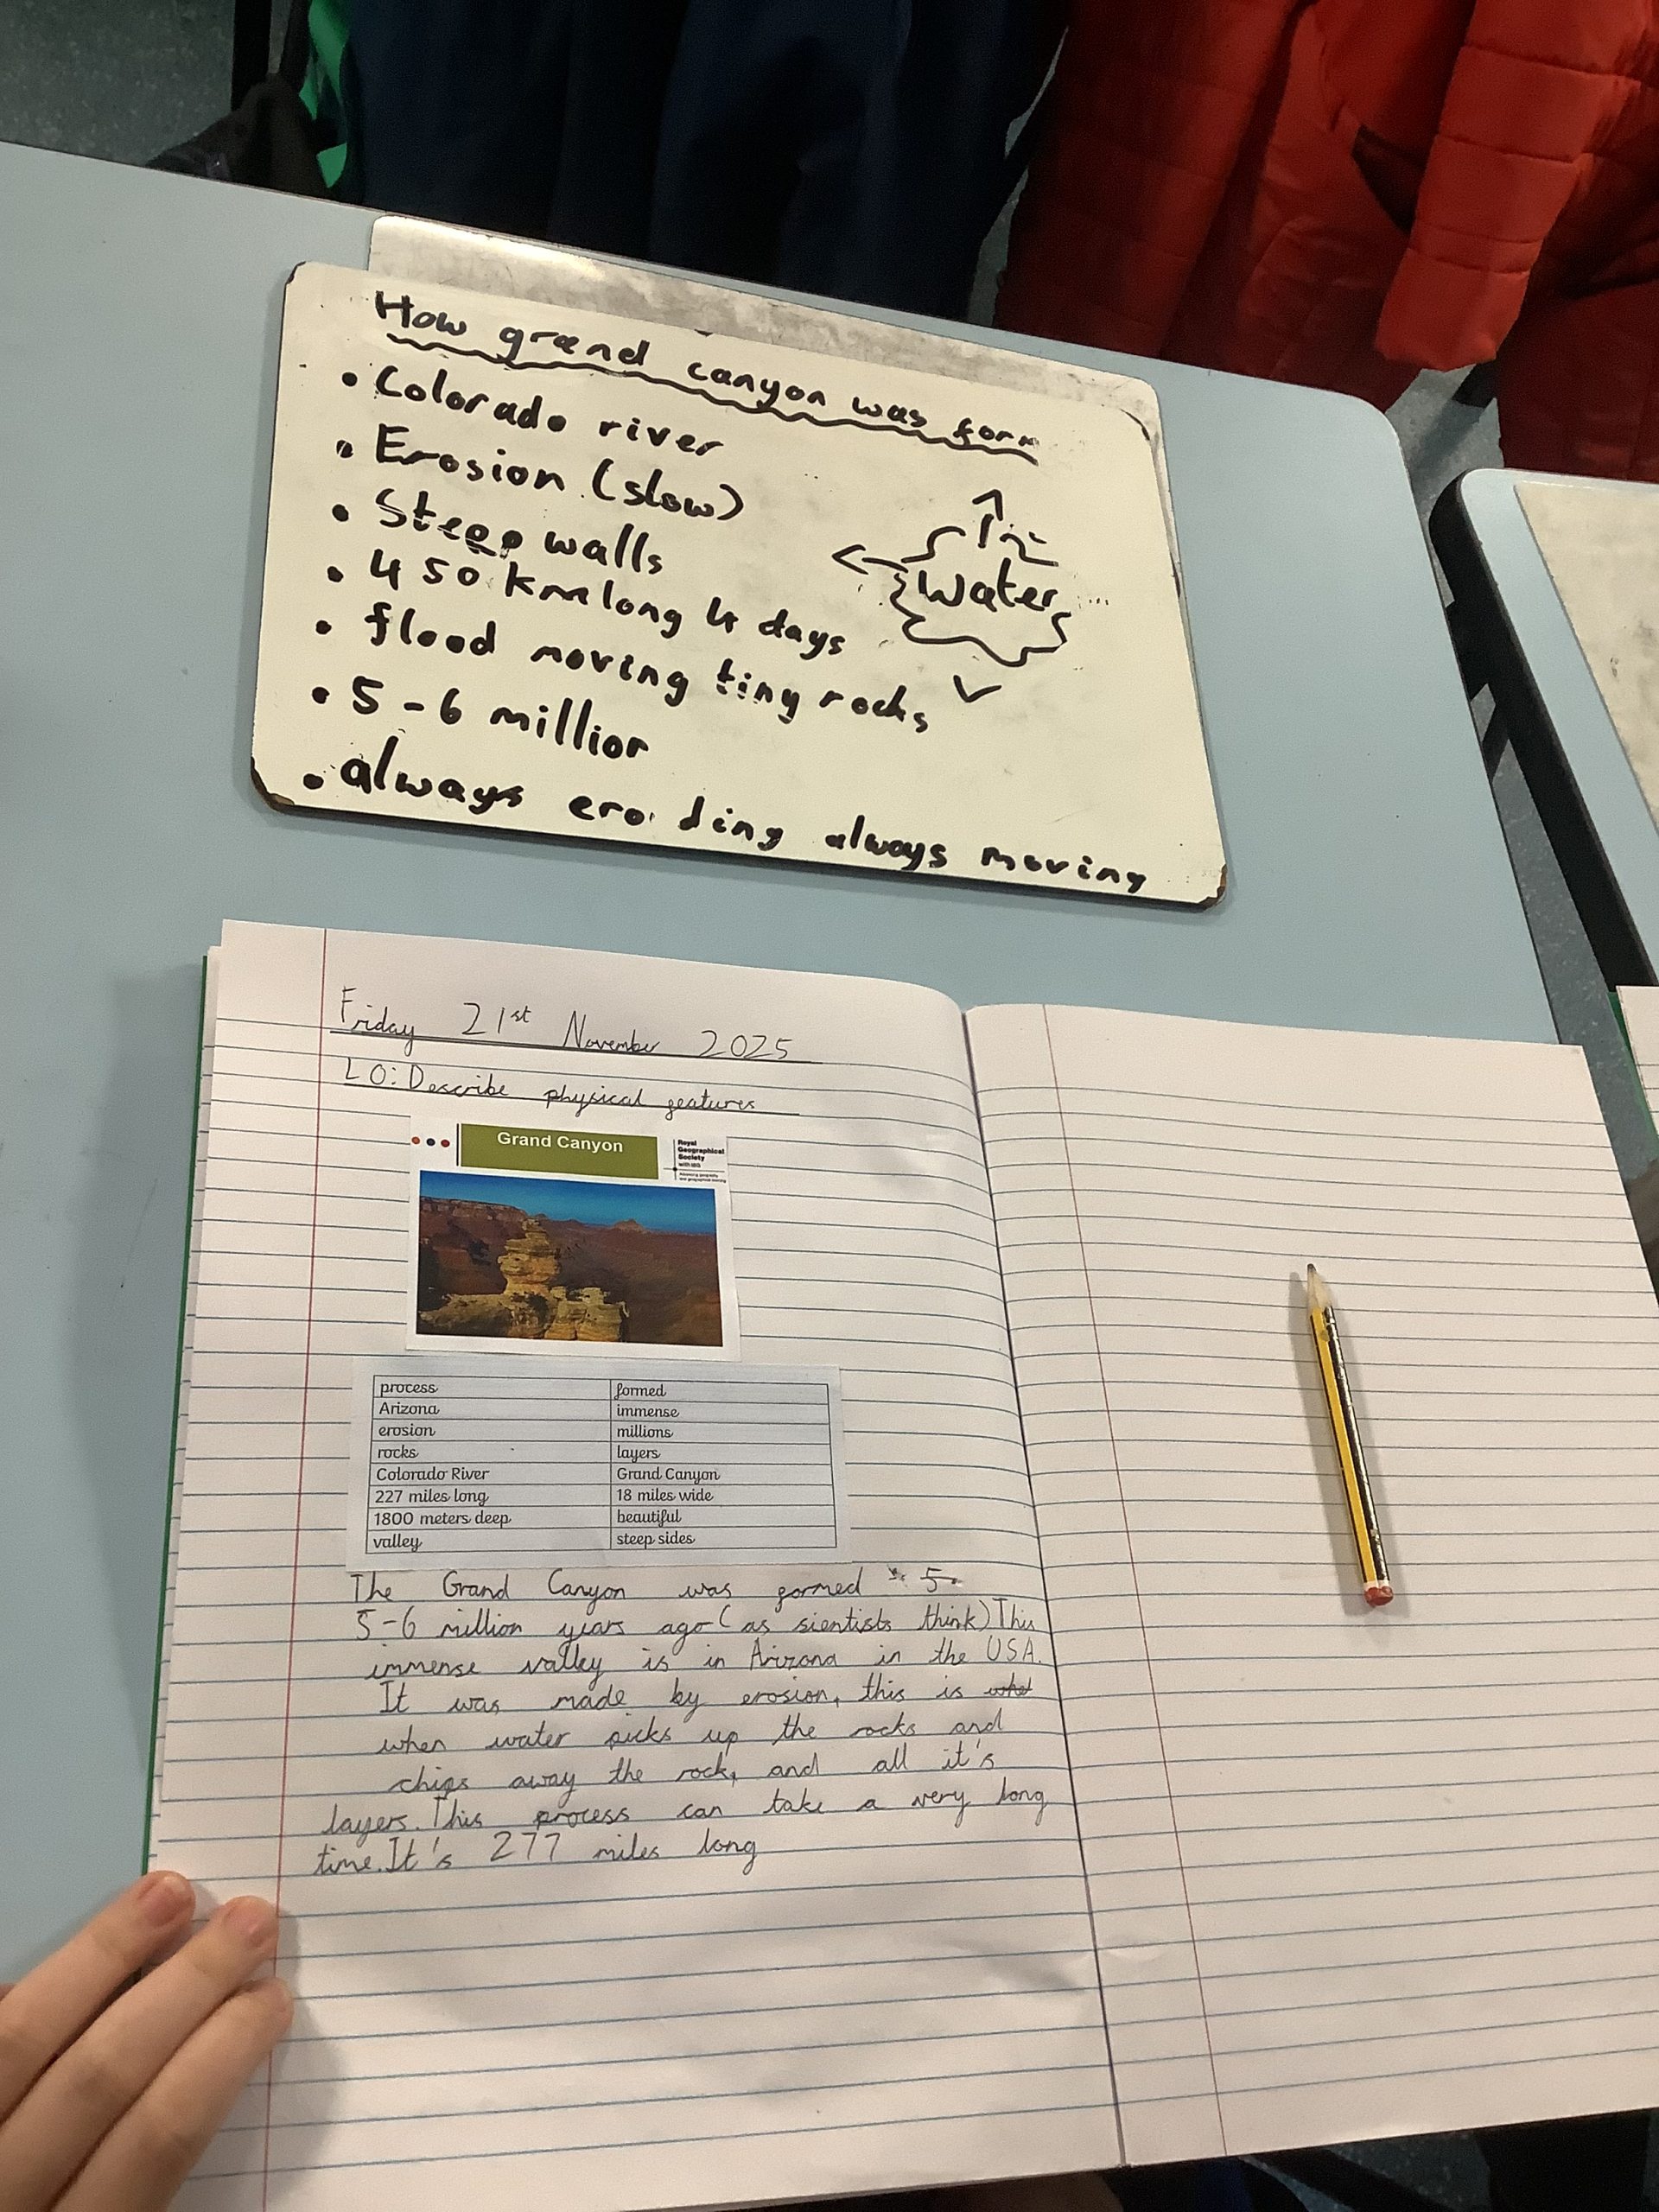 How grand canyon was form
• Colorado river
• Erosion (slow)
• Steep walls
• 450 km long 4 days
• flood moving tiny rocks
• 5-6 million
• always eroding always moving
Water
Friday 21st November 2025
LO: Describe physical features
Grand Canyon
Royal
Geographical
Society
with IBG
process formed
Arizona immense
erosion millions
rocks layers
Colorado River Grand Canyon
227 miles long 18 miles wide
1800 meters deep beautiful
valley steep sides
The Grand Canyon was formed 5-
5-6 million years ago (as sientists think) This
immense valley is in Arizona in the USA.
It was made by erosion, this is what
when water picks up the rocks and
chips away the rock, and all it's
layers. This process can take a very long
time. It's 277 miles long